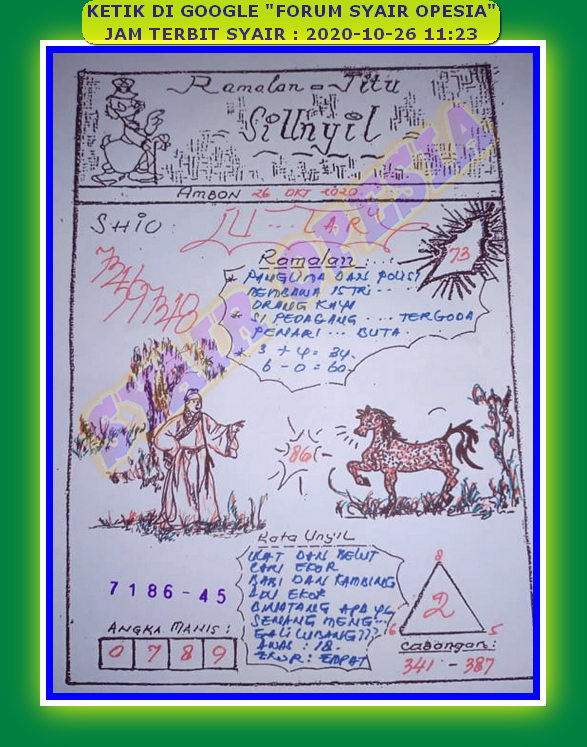 KETIK DI GOOGLE "FORUM SYAIR OPESIA"
JAM TERBIT SYAIR : 2020-10-26 11:23
Ramalan = Jitu
Si Unyil
AMBON 26 OKT 2020
SHIO:
73
Ramalan:...
* PANGLIMA DAN POLISI
MEMBAWA ISTRI...
ORANG KAYA
* SI PEDAGANG .... TERGODA
PENARI ... BUTA.
* 3 + 4 = 34.
6 - 0 = 60.
SYAIR OPESIA
86
Kata Unyil
ULAT DAN BELUT
CARI EKOR
BABI DAN KAMBING
ADU EKOR
BINATANG APA YG
SENANG MENG...
GALI LUBANG???
AWAS : 18.
EKOR : EMPAT
7186-45
ANGKA MANIS :
0 7 8 9
8
2
6
5
Cabangan:
341 - 387